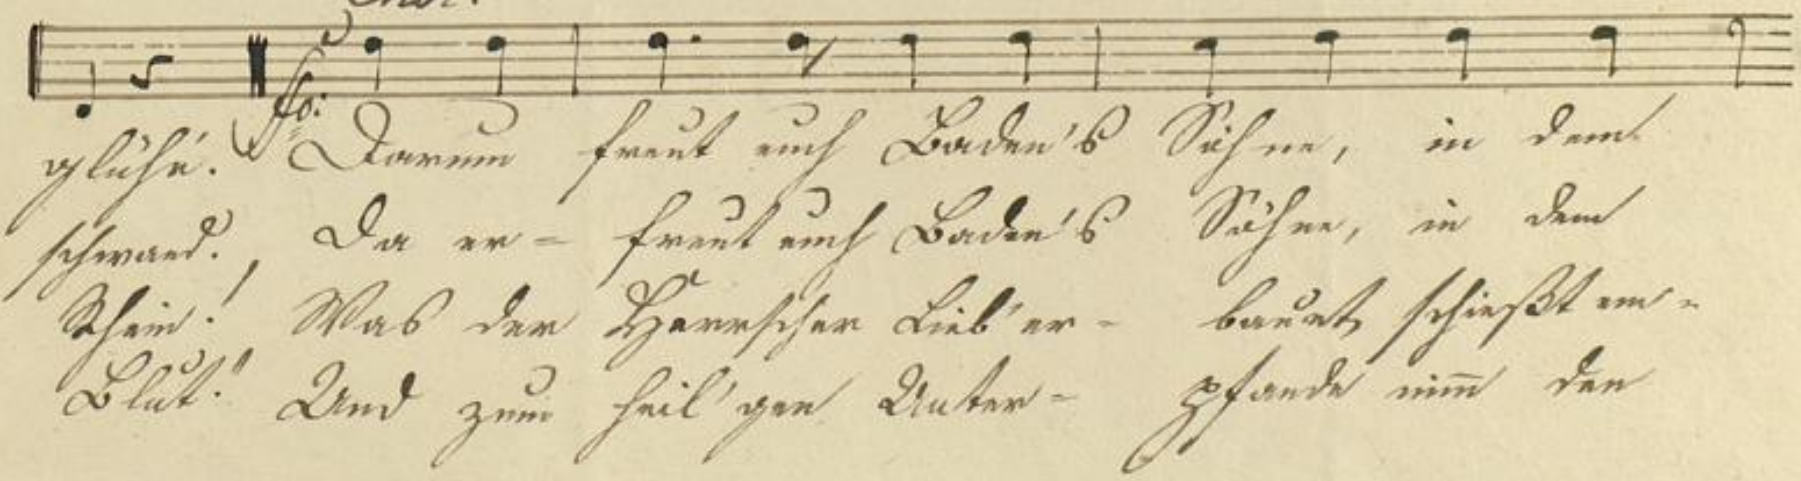 Chor.
fo:
glüht. Darum freut euch Baden's Söhne, in dem
schwand., Da er- freut euch Baden's Söhne, in dem
Rhein! Was der Herrscher Lieb' er- bauet, schießt em-
Blut!" Und zum heil'gen Unter- pfande nim̄ den